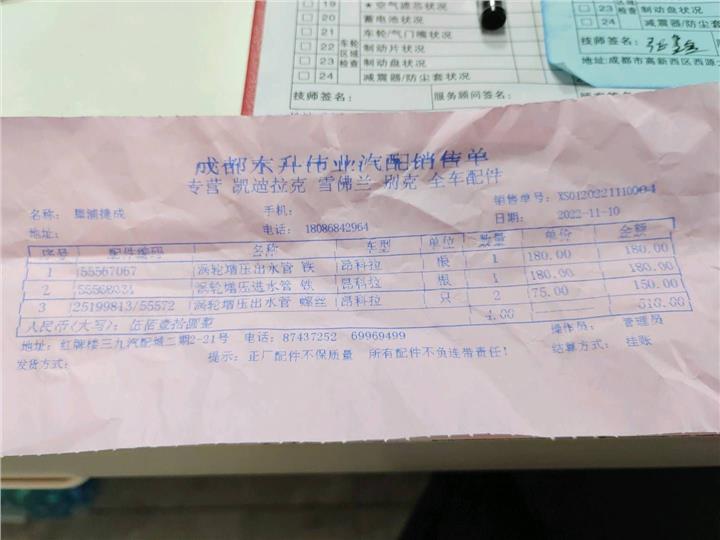 19 ★空气滤芯状况
20 蓄电池状况
21 车轮/气门嘴状况
22 制动片状况
23 制动盘状况
24 减震器/防尘套状况
车轮区域检查
技师签名: 服务顾问签名:
23 制动盘状况
24 减震器/防尘套
技师签名:
地址:成都市高新西区西源大
成都东升伟业汽配销售单
专营 凯迪拉克 雪佛兰 别克 全车配件
名称: 集浦捷成 手机: 销售单号: XS0120221110004
地址: 电话: 18086842964 日期: 2022-11-10
序号 配件编码 名称 车型 单位 数量 单价 金额
1 55567067 涡轮增压出水管 铁 昂科拉 根 1 180.00 180.00
2 涡轮增压进水管 铁 昂科拉 根 1 180.00 180.00
3 25199843/55572 涡轮增压出水管 螺丝 昂科拉 只 2 75.00 150.00
人民币(大写): 伍佰壹拾圆整 4.00 510.00
地址: 红牌楼三九汽配城二期2-21号 电话: 87437252 69969499 操作员: 管理员
发货方式: 提示: 正厂配件不保质量 所有配件不负连带责任! 结算方式: 挂账